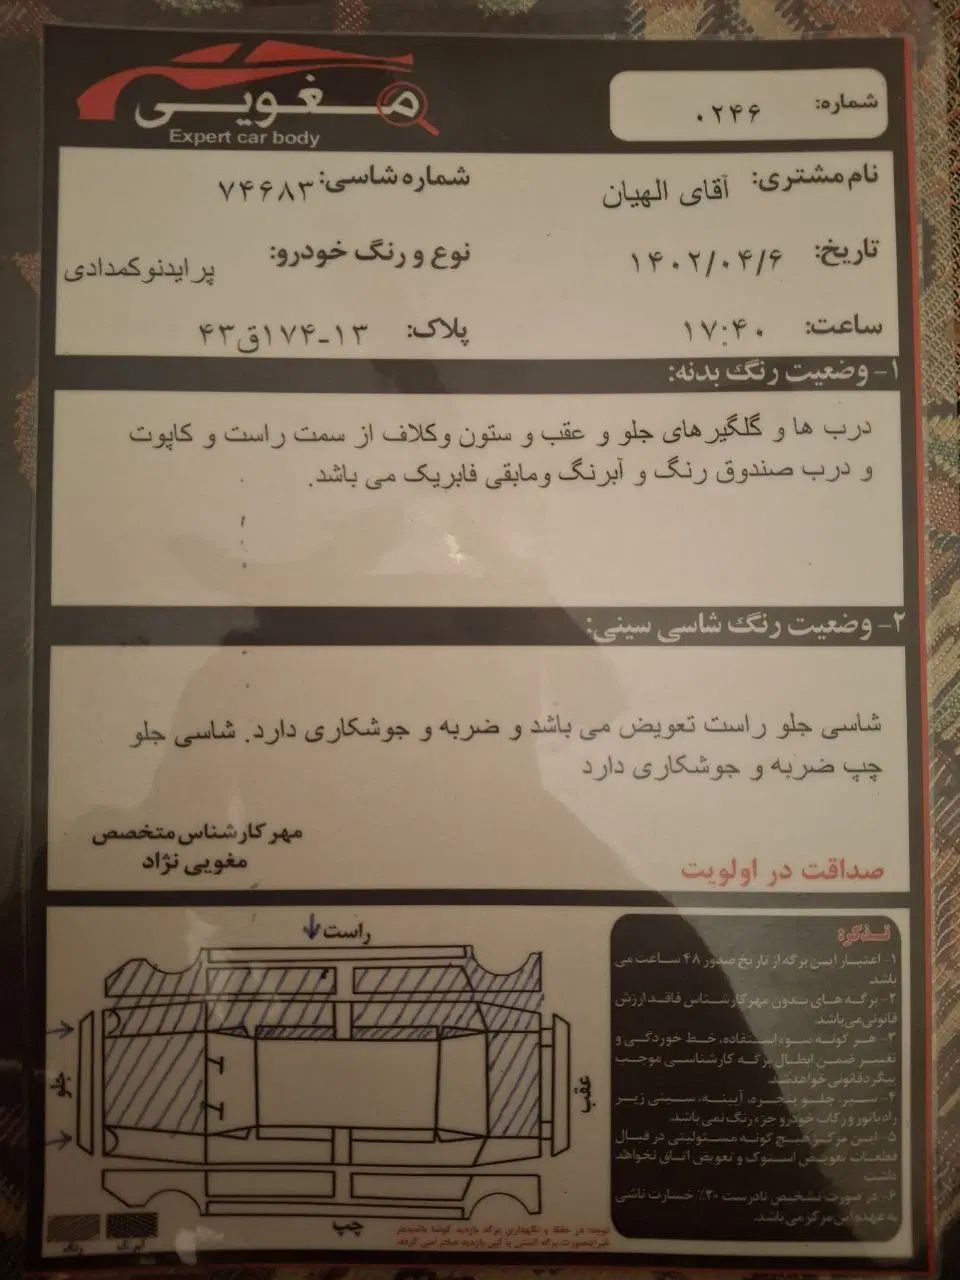 مغویی
Expert car body
شماره: ۰۲۴۶
نام مشتری: آقای الهیان
شماره شاسی: ۷۴۶۸۳
تاریخ: ۱۴۰۲/۰۴/۶
نوع و رنگ خودرو: پرایدنوکمدادی
ساعت: ۱۷:۴۰
پلاک: ۱۳-۱۷۴ق۴۳
۱- وضعیت رنگ بدنه:
درب ها و گلگیرهای جلو و عقب و ستون وکلاف از سمت راست و کاپوت
و درب صندوق رنگ و آبرنگ ومابقی فابریک می باشد.
۲- وضعیت رنگ شاسی سینی:
شاسی جلو راست تعویض می باشد و ضربه و جوشکاری دارد. شاسی جلو
چپ ضربه و جوشکاری دارد
مهر کارشناس متخصص
مغویی نژاد
صداقت در اولویت
راست
جلو
عقب
چپ
رنگ
آبرنگ
تذکر:
۱- اعتبار این برگه از تاریخ صدور ۴۸ ساعت می
باشد
۲- برگه های بدون مهر کارشناس فاقد ارزش
قانونی می باشد.
۳- هر گونه سوء استفاده، خط خوردگی و
تغییر ضمن ابطال برگه کارشناسی موجب
پیگرد قانونی خواهد شد.
۴- سپر، جلو پنجره، آیینه، سینی زیر
رادیاتور و رکاب خودرو جزء رنگ نمی باشد.
۵- این مرکز هیچ گونه مسئولیتی در قبال
قطعات تعویض استوک و تعویض اتاق نخواهد
داشت
۶- در صورت تشخیص نادرست ۳۰٪ خسارت ناشی
به عهده این مرکز می باشد.
توجه: در حفظ و نگهداری برگه بازدید کوشا باشید در
غیر اینصورت برگه المثنی یا کپی بازدید صادر نمی گردد.